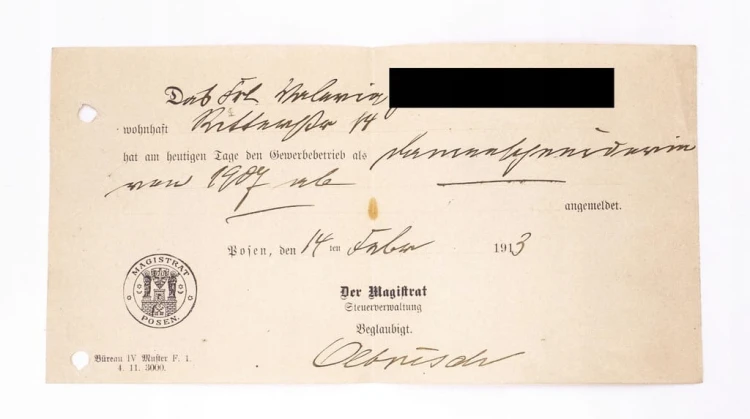 Daß Frl. Valeria
wohnhaft Ritterstr 14
hat am heutigen Tage den Gewerbebetrieb als Damenschneiderin
von 1907 ab
angemeldet.
Posen, den 14 ten Febr 1913
MAGISTRAT
POSEN.
Der Magistrat
Steuerverwaltung
Beglaubigt.
Büreau IV Muster F. 1.
4. 11. 3000.